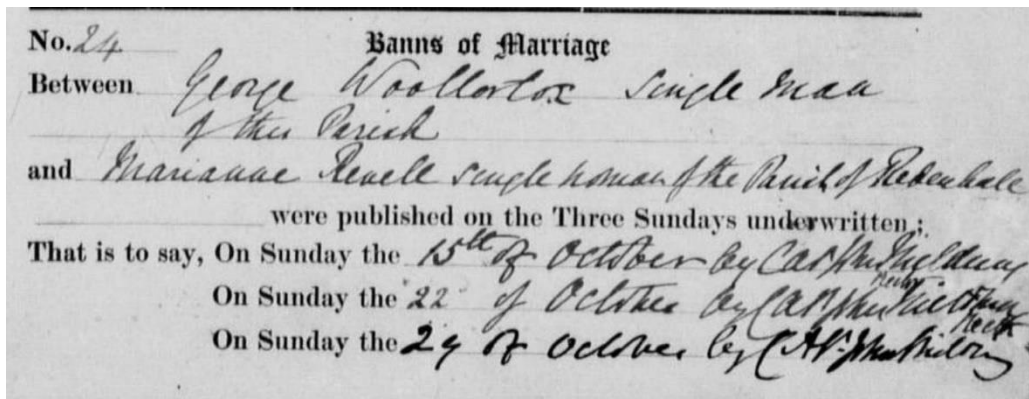 No. 24 Banns of Marriage
Between George Woollorton Single Man
of this Parish
and Marianne Revell single woman of the Parish of Redenhall
were published on the Three Sundays underwritten;
That is to say, On Sunday the 15th of October by C A St John
On Sunday the 22 of October by C A St John Rector
On Sunday the 29 of October by C A St John